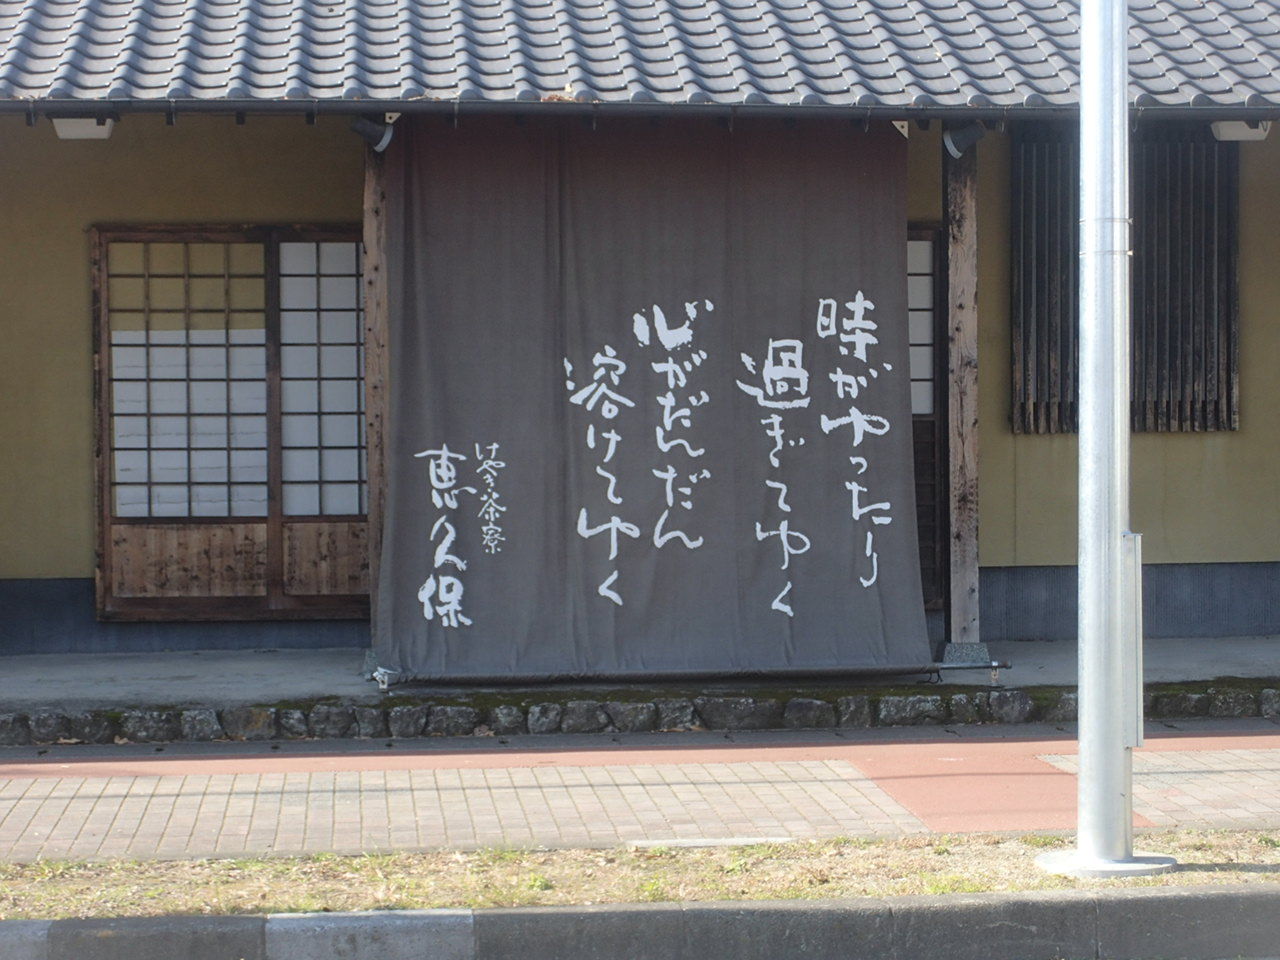 時がゆったり
過ぎてゆく
心がだんだん
溶けてゆく
けやき茶寮
恵久保